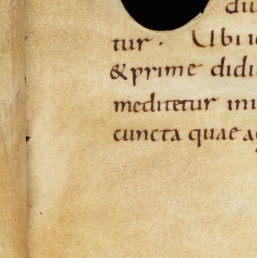 du
tur. Ubi i
& prime didi
meditetur ini
cuncta quae a